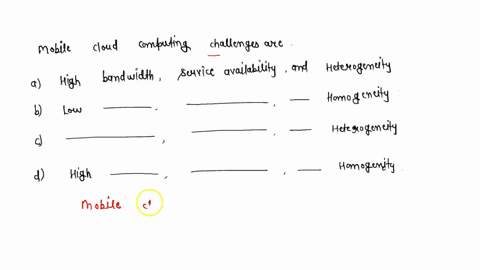 Mobile cloud computing challenges are.
a) High bandwidth, service availability, and Heterogeneity
b) Low ____, ____, __ Homogeneity
c) ____, ____, __ Heterogeneity
d) High ____, ____, __ Homogenity.
Mobile c